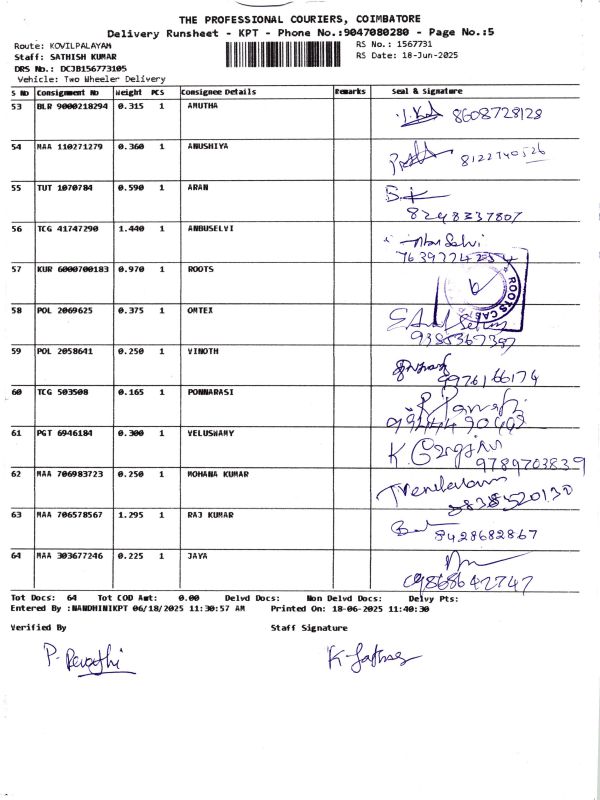 THE PROFESSIONAL COURIERS, COIMBATORE
Delivery Runsheet - KPT - Phone No.:9047080280 - Page No.:5
Route: KOVILPALAYAM
RS No.: 1567731
Staff: SATHISH KUMAR
RS Date: 18-Jun-2025
DRS No.: DCJB156773105
Vehicle: Two Wheeler Delivery
S No Consignment No Weight PCS Consignee Details Remarks Seal & Signature
53 BLR 9000218294 0.315 1 AMUTHA 8608728128
54 MAA 110271279 0.360 1 ANUSHIYA 8122740526
55 TUT 1070784 0.590 1 ARAN
8248337807
56 TCG 41747290 1.440 1 ANBUSELVI
57 KUR 6000700183 0.970 1 ROOTS ROOTS
58 POL 2069625 0.375 1 OMTEX
9385367397
59 POL 2058641 0.250 1 VINOTH
9976166174
60 TCG 503508 0.165 1 PONNARASI
61 PGT 6946184 0.300 1 VELUSWAMY
9789703839
62 MAA 706983723 0.250 1 MOHANA KUMAR
63 MAA 706578567 1.295 1 RAJ KUMAR
9428682867
64 MAA 303677246 0.225 1 JAYA
Tot Docs: 64 Tot COD Amt: 0.00 Delvd Docs: Non Delvd Docs: Delvy Pts:
Entered By :NANDHINIKPT 06/18/2025 11:30:57 AM Printed On: 18-06-2025 11:40:30
Verified By Staff Signature
P. Revathi